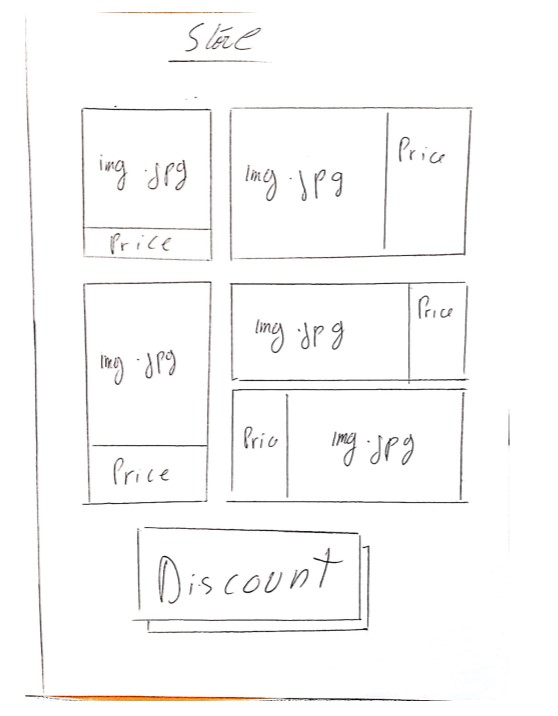 Store
img.jpg
Price
img.jpg
Price
img.jpg
Price
img.jpg
Price
Price
img.jpg
Discount